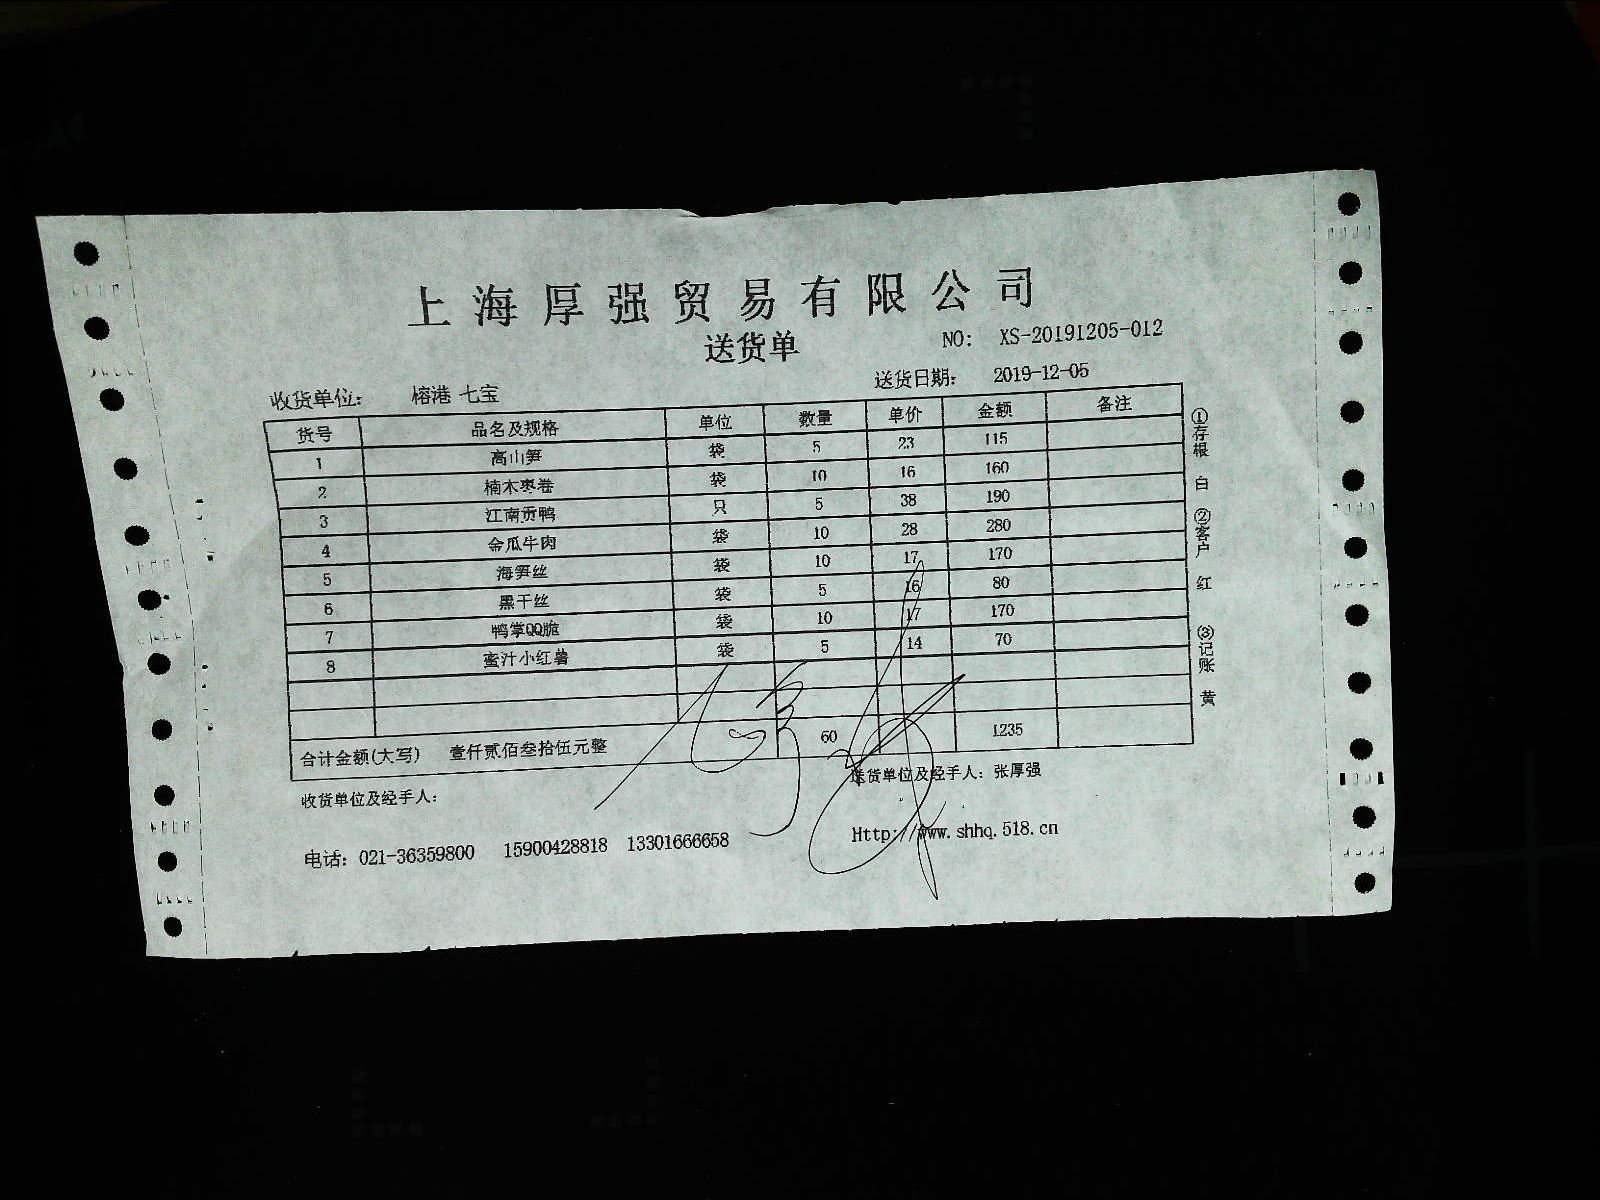 上海厚强贸易有限公司
送货单
NO: XS-20191205-012
收货单位: 榕港 七宝 送货日期: 2019-12-05
货号 品名及规格 单位 数量 单价 金额 备注
1 高山笋 袋 5 23 115
2 楠木枣卷 袋 10 16 160
3 江南贡鸭 只 5 38 190
4 金瓜牛肉 袋 10 28 280
5 海笋丝 袋 10 17 170
6 黑干丝 袋 5 16 80
7 鸭掌QQ脆 袋 10 17 170
8 蜜汁小红薯 袋 5 14 70
合计金额(大写) 壹仟贰佰叁拾伍元整 60 1235
收货单位及经手人: 送货单位及经手人: 张厚强
电话: 021-36359800 15900428818 13301666658 Http://www.shhq.518.cn
①存根 白 ②客户 红 ③记账 黄